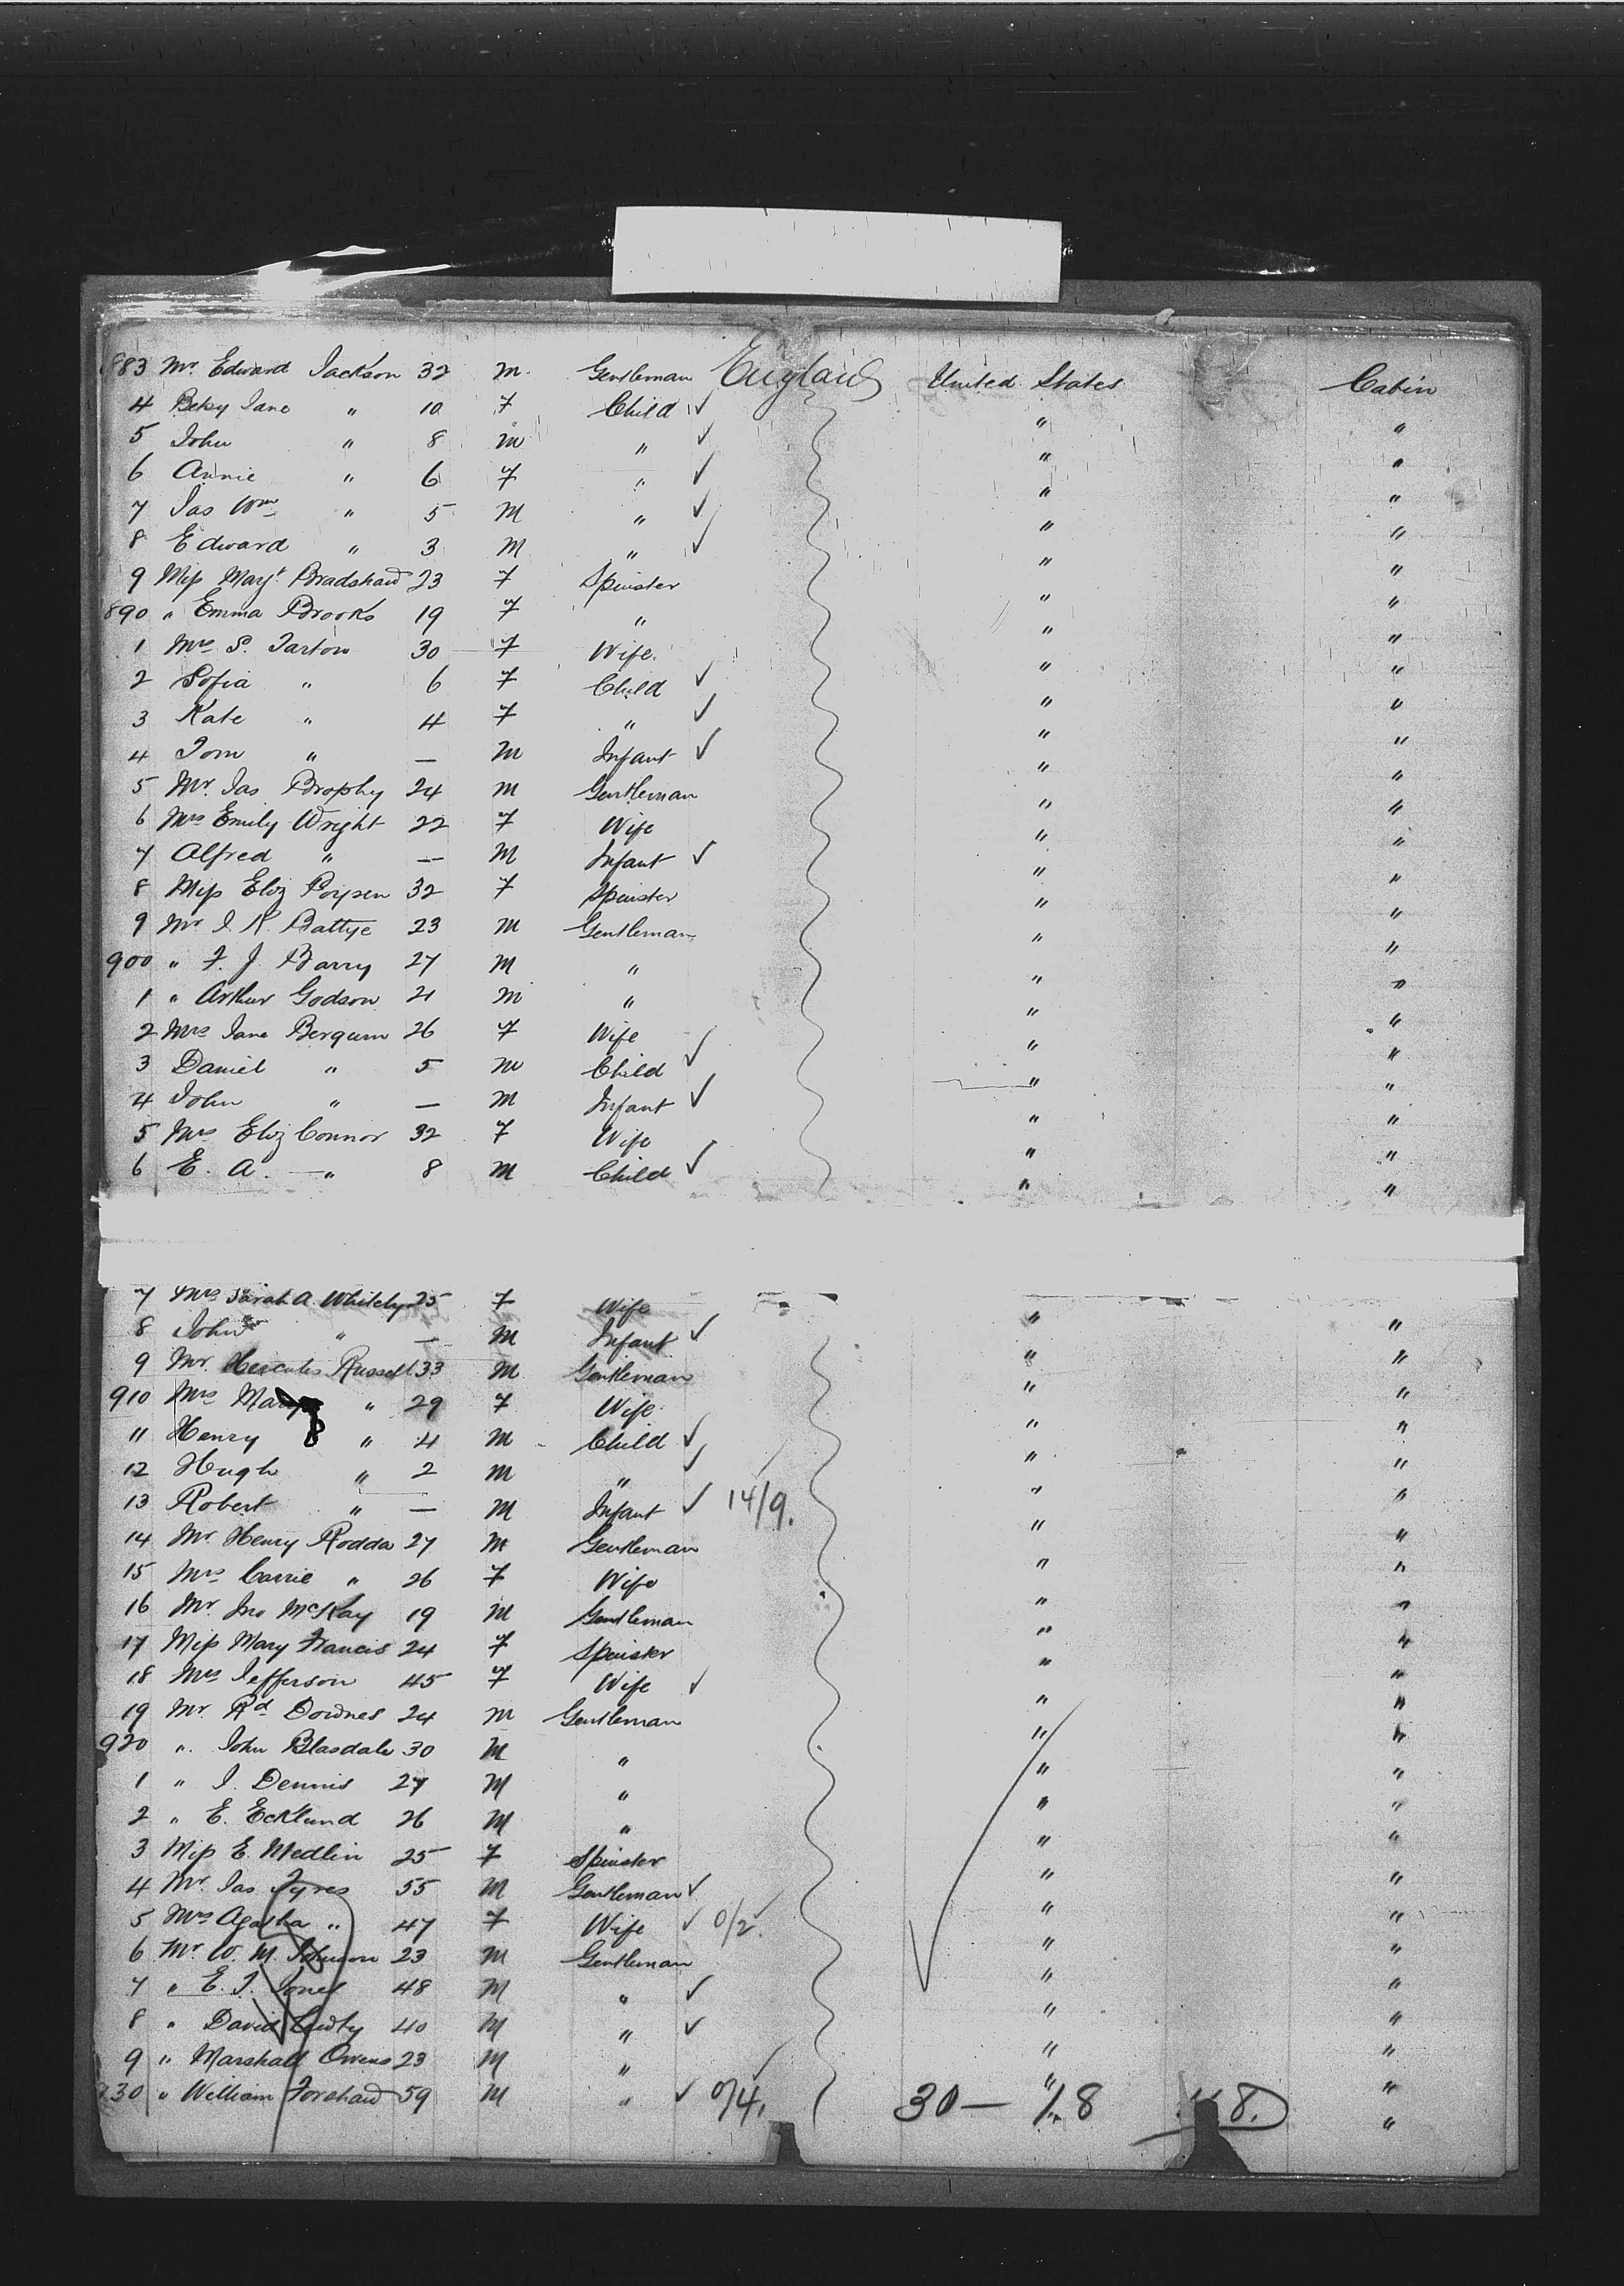 883 Mr. Edward Jackson 32 M. Gentleman England United States Cabin
4 Betsy Jane " 10 F Child ✓ " "
5 John " 8 M " ✓ " "
6 Annie " 6 F " ✓ " "
7 Jas Wm " 5 M " ✓ " "
8 Edward " 3 M " ✓ " "
9 Miss Margt Bradshaw 23 F Spinster " "
890 " Emma Brooks 19 F " " "
1 Mrs S. Tarton 30 F Wife " "
2 Sofia " 6 F Child ✓ " "
3 Kate " 4 F " ✓ " "
4 Tom " — M Infant ✓ " "
5 Mr. Jas Brophy 24 M Gentleman " "
6 Mrs Emily Wright 22 F Wife " "
7 Alfred " — M Infant ✓ " "
8 Miss Eliz 32 F Spinster " "
9 Mr J. K. Battye 23 M Gentleman " "
900 " F. J. Barry 27 M " " "
1 " Arthur Godson 21 M " " "
2 Mrs Jane Bergum 26 F Wife " "
3 Daniel " 5 M Child ✓ " "
4 John " — M Infant ✓ " "
5 Mrs Eliz Connor 32 F Wife " "
6 E. A. — " 8 M Child ✓ " "
7 Mrs Sarah A Whitely 25 F Wife " "
8 John " — M Infant ✓ " "
9 Mr. Hercules Russell 33 M Gentleman " "
910 Mrs Mary " 29 F Wife " "
11 Henry 8 " 4 M Child ✓ " "
12 Hugh " 2 M " ✓ " "
13 Robert " — M Infant ✓ 14/9. " "
14 Mr Henry Rodda 27 M Gentleman " "
15 Mrs Carrie " 26 F Wife " "
16 Mr. Jno McKay 19 M Gentleman " "
17 Miss Mary Francis 24 F Spinster " "
18 Mrs Jefferson 45 F Wife ✓ " "
19 Mr. Rd Downes 24 M Gentleman " "
920 " John Blasdale 30 M " " "
1 " J. Dennis 27 M " " "
2 " E. Ecklund 26 M " " "
3 Miss E. Medlin 25 F Spinster " "
4 Mr. Jas Tyres 55 M Gentleman ✓ " "
5 Mrs Agatha " 47 F Wife ✓ 0/2. " "
6 Mr W. M. Johnson 23 M Gentleman " "
7 " E. J. Jones 48 M " ✓ " "
8 " David 40 M " ✓ " "
9 " Marshall Owens 23 M " " "
930 " William Forshaw 59 M " ✓ 0/4. " "
30 — 18 8.